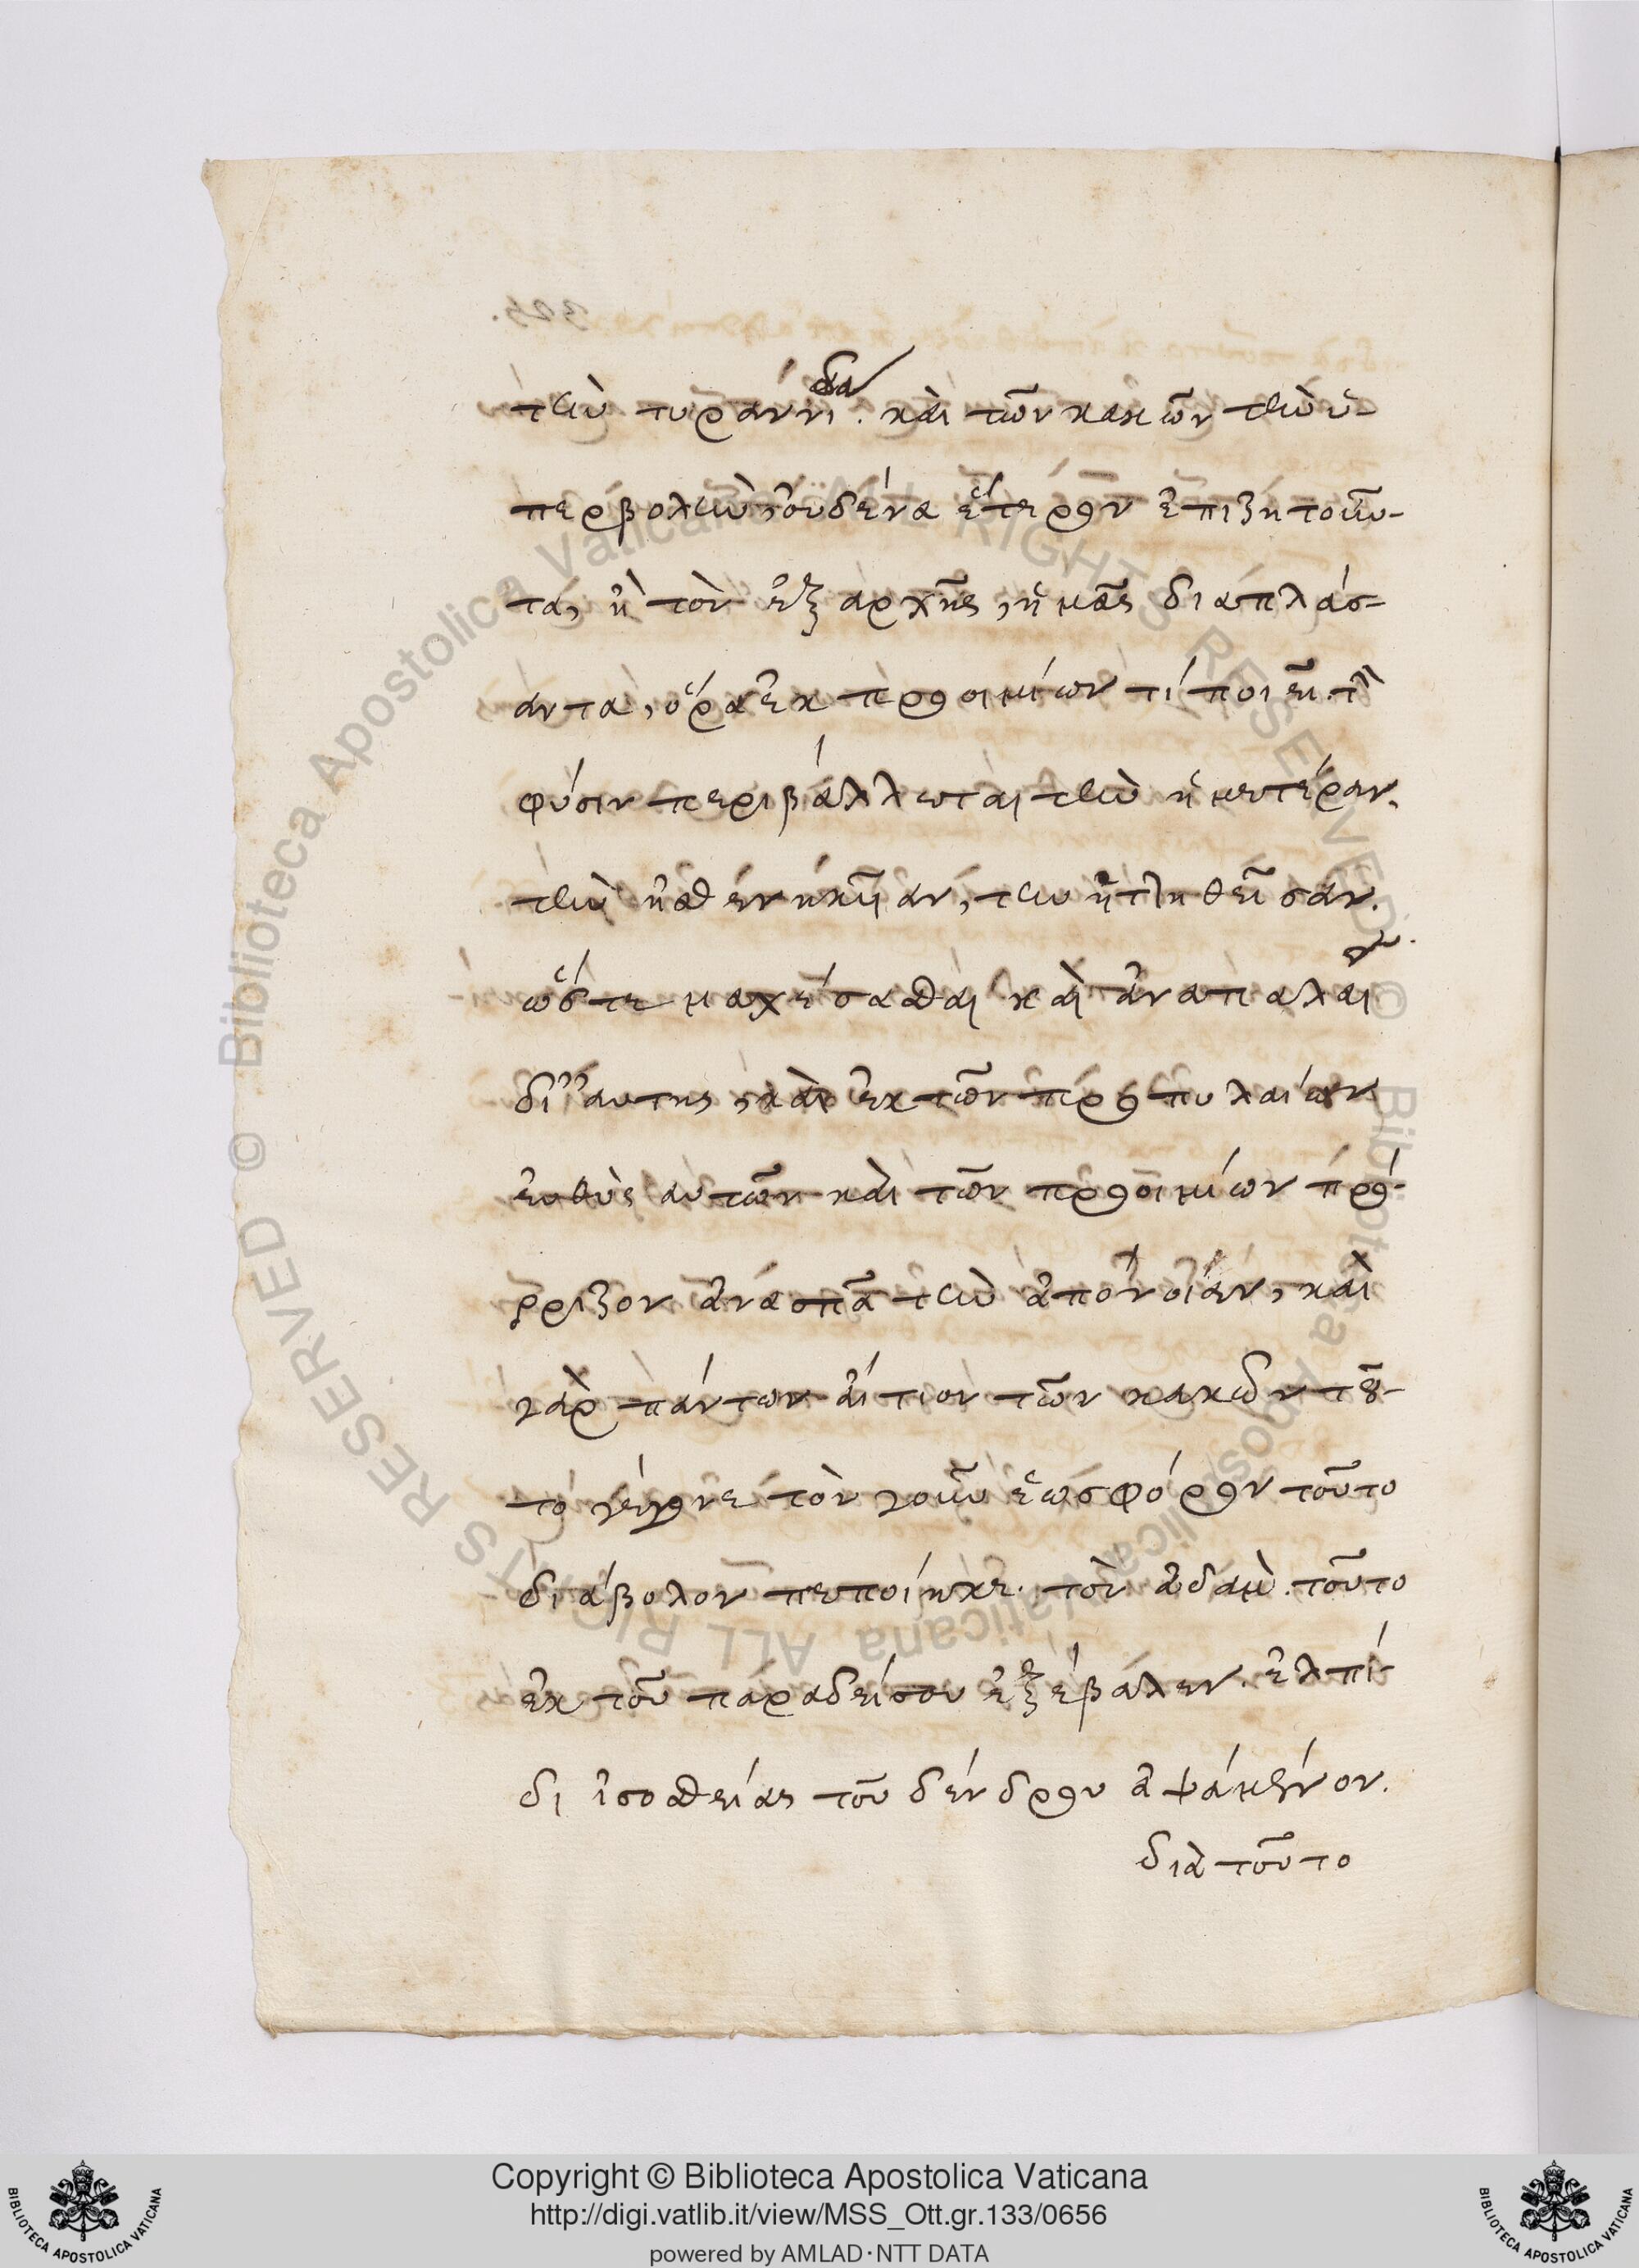 τὴν τυραννίδα. καὶ τῶν κακῶν τὴν ὑ-
περβολὴν, οὐδένα ἕτερον ἐπιζητοῦν-
τα, ἢ τὸν ἐξ ἀρχῆς, ἡμᾶς διαπλάσ-
αντα, ὅρα ἐκ προοιμίων τί ποιεῖ. τὴν
φύσιν περιβάλλεται τὴν ἡμετέραν.
τὴν ἠσθενηκυῖαν, τὴν ἡττηθεῖσαν.
ὥστε μαχέσασθαι καὶ ἀναπαλαῖσαι
δι' αὐτῆς, καὶ ἐκ τῶν προπυλαίων
εὐθὺς αὐτῶν καὶ τῶν προοιμίων πρό-
ρριζον ἀνασπᾷ τὴν ἀπόνοιαν, καὶ
γὰρ πάντων αἴτιον τῶν κακῶν τοῦ-
το γέγονε τὸν γοῦν ἑωσφόρον τοῦτο
διάβολον πεποίηκε. τὸν ἀδὰμ. τοῦτο
ἐκ τοῦ παραδείσου ἐξέβαλεν. ἐλπί-
δι ἰσοθείας τοῦ δένδρου ἁψάμενον.
διὰ τοῦτο
325.
Copyright © Biblioteca Apostolica Vaticana
http://digi.vatlib.it/view/MSS_Ott.gr.133/0656
powered by AMLAD·NTT DATA
BIBLIOTECA APOSTOLICA VATICANA
BIBLIOTECA APOSTOLICA VATICANA
© Biblioteca Apostolica Vaticana ALL RIGHTS RESERVED © Biblioteca Apostolica Vaticana ALL RIGHTS RESERVED